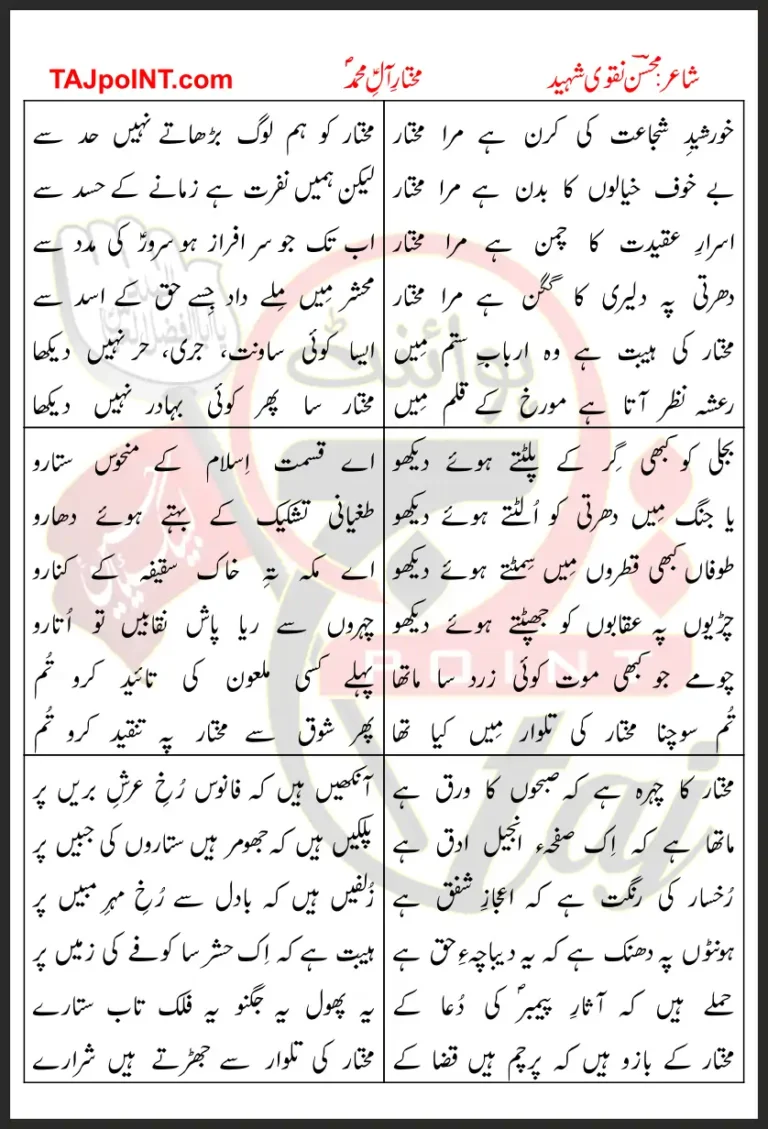 شاعر: محسن نقوی شہید
مختارِ آلِ محمدؐ
TAJpoiNT.com
خورشیدِ شجاعت کی کرن ہے مرا مختار
بے خوف خیالوں کا بدن ہے مرا مختار
اسرارِ عقیدت کا چمن ہے مرا مختار
دھرتی پہ دلیری کا گگن ہے مرا مختار
مختار کی ہیبت ہے وہ اربابِ ستم مِیں
رعشہ نظر آتا ہے مورخ کے قلم مِیں
مختار کو ہم لوگ بڑھاتے نہیں حد سے
لیکن ہمیں نفرت ہے زمانے کے حسد سے
اب تک جو سر افراز ہو سرورؑ کی مدد سے
محشر مِیں مِلے داد جِسے حق کے اسد سے
ایسا کوئی ساونت، جری، حر نہیں دیکھا
مختار سا پھر کوئی بہادر نہیں دیکھا
بجلی کو کبھی گِر کے پلٹتے ہوئے دیکھو
یا جنگ مِیں دھرتی کو اُلٹتے ہوئے دیکھو
طوفاں کبھی قطروں مِیں سِمٹتے ہوئے دیکھو
چڑیوں پہ عقابوں کو جھپٹتے ہوئے دیکھو
چومے جو کبھی موت کوئی زرد سا ماتھا
تُم سوچنا مختار کی تلوار مِیں کیا تھا
اے قسمت اِسلام کے منحوس ستارو
طغیانی تشکیک کے بہتے ہوئے دھارو
اے مکہ تہِ خاک سقیفہ کے کنارو
چہروں سے ریا پاش نقابیں تو اُتارو
پہلے کسی ملعون کی تائید کرو تُم
پھر شوق سے مختار پہ تنقید کرو تُم
مختار کا چہرہ ہے کہ صبحوں کا ورق ہے
ماتھا ہے کہ اِک صفحہء انجیل ادق ہے
رُخسار کی رنگت ہے کہ اعجازِ شفق ہے
ہونٹوں پہ دھنک ہے کہ یہ دیباچہءِ حق ہے
حملے ہیں کہ آثارِ پیمبرؐ کی دُعا کے
مختار کے بازو ہیں کہ پرچم ہیں قضا کے
آنکھیں ہیں کہ فانوس رُخِ عرشِ بریں پر
پلکیں ہیں کہ جھومر ہیں ستاروں کی جبیں پر
زُلفیں ہیں کہ بادل سے رُخِ مہرِ مبیں پر
ہیبت ہے کہ اِک حشر سا کوفے کی زمیں پر
یہ پھول یہ جگنو یہ فلک تاب ستارے
مختار کی تلوار سے جھڑتے ہیں شرارے
پوائنٹ
POINT
taj